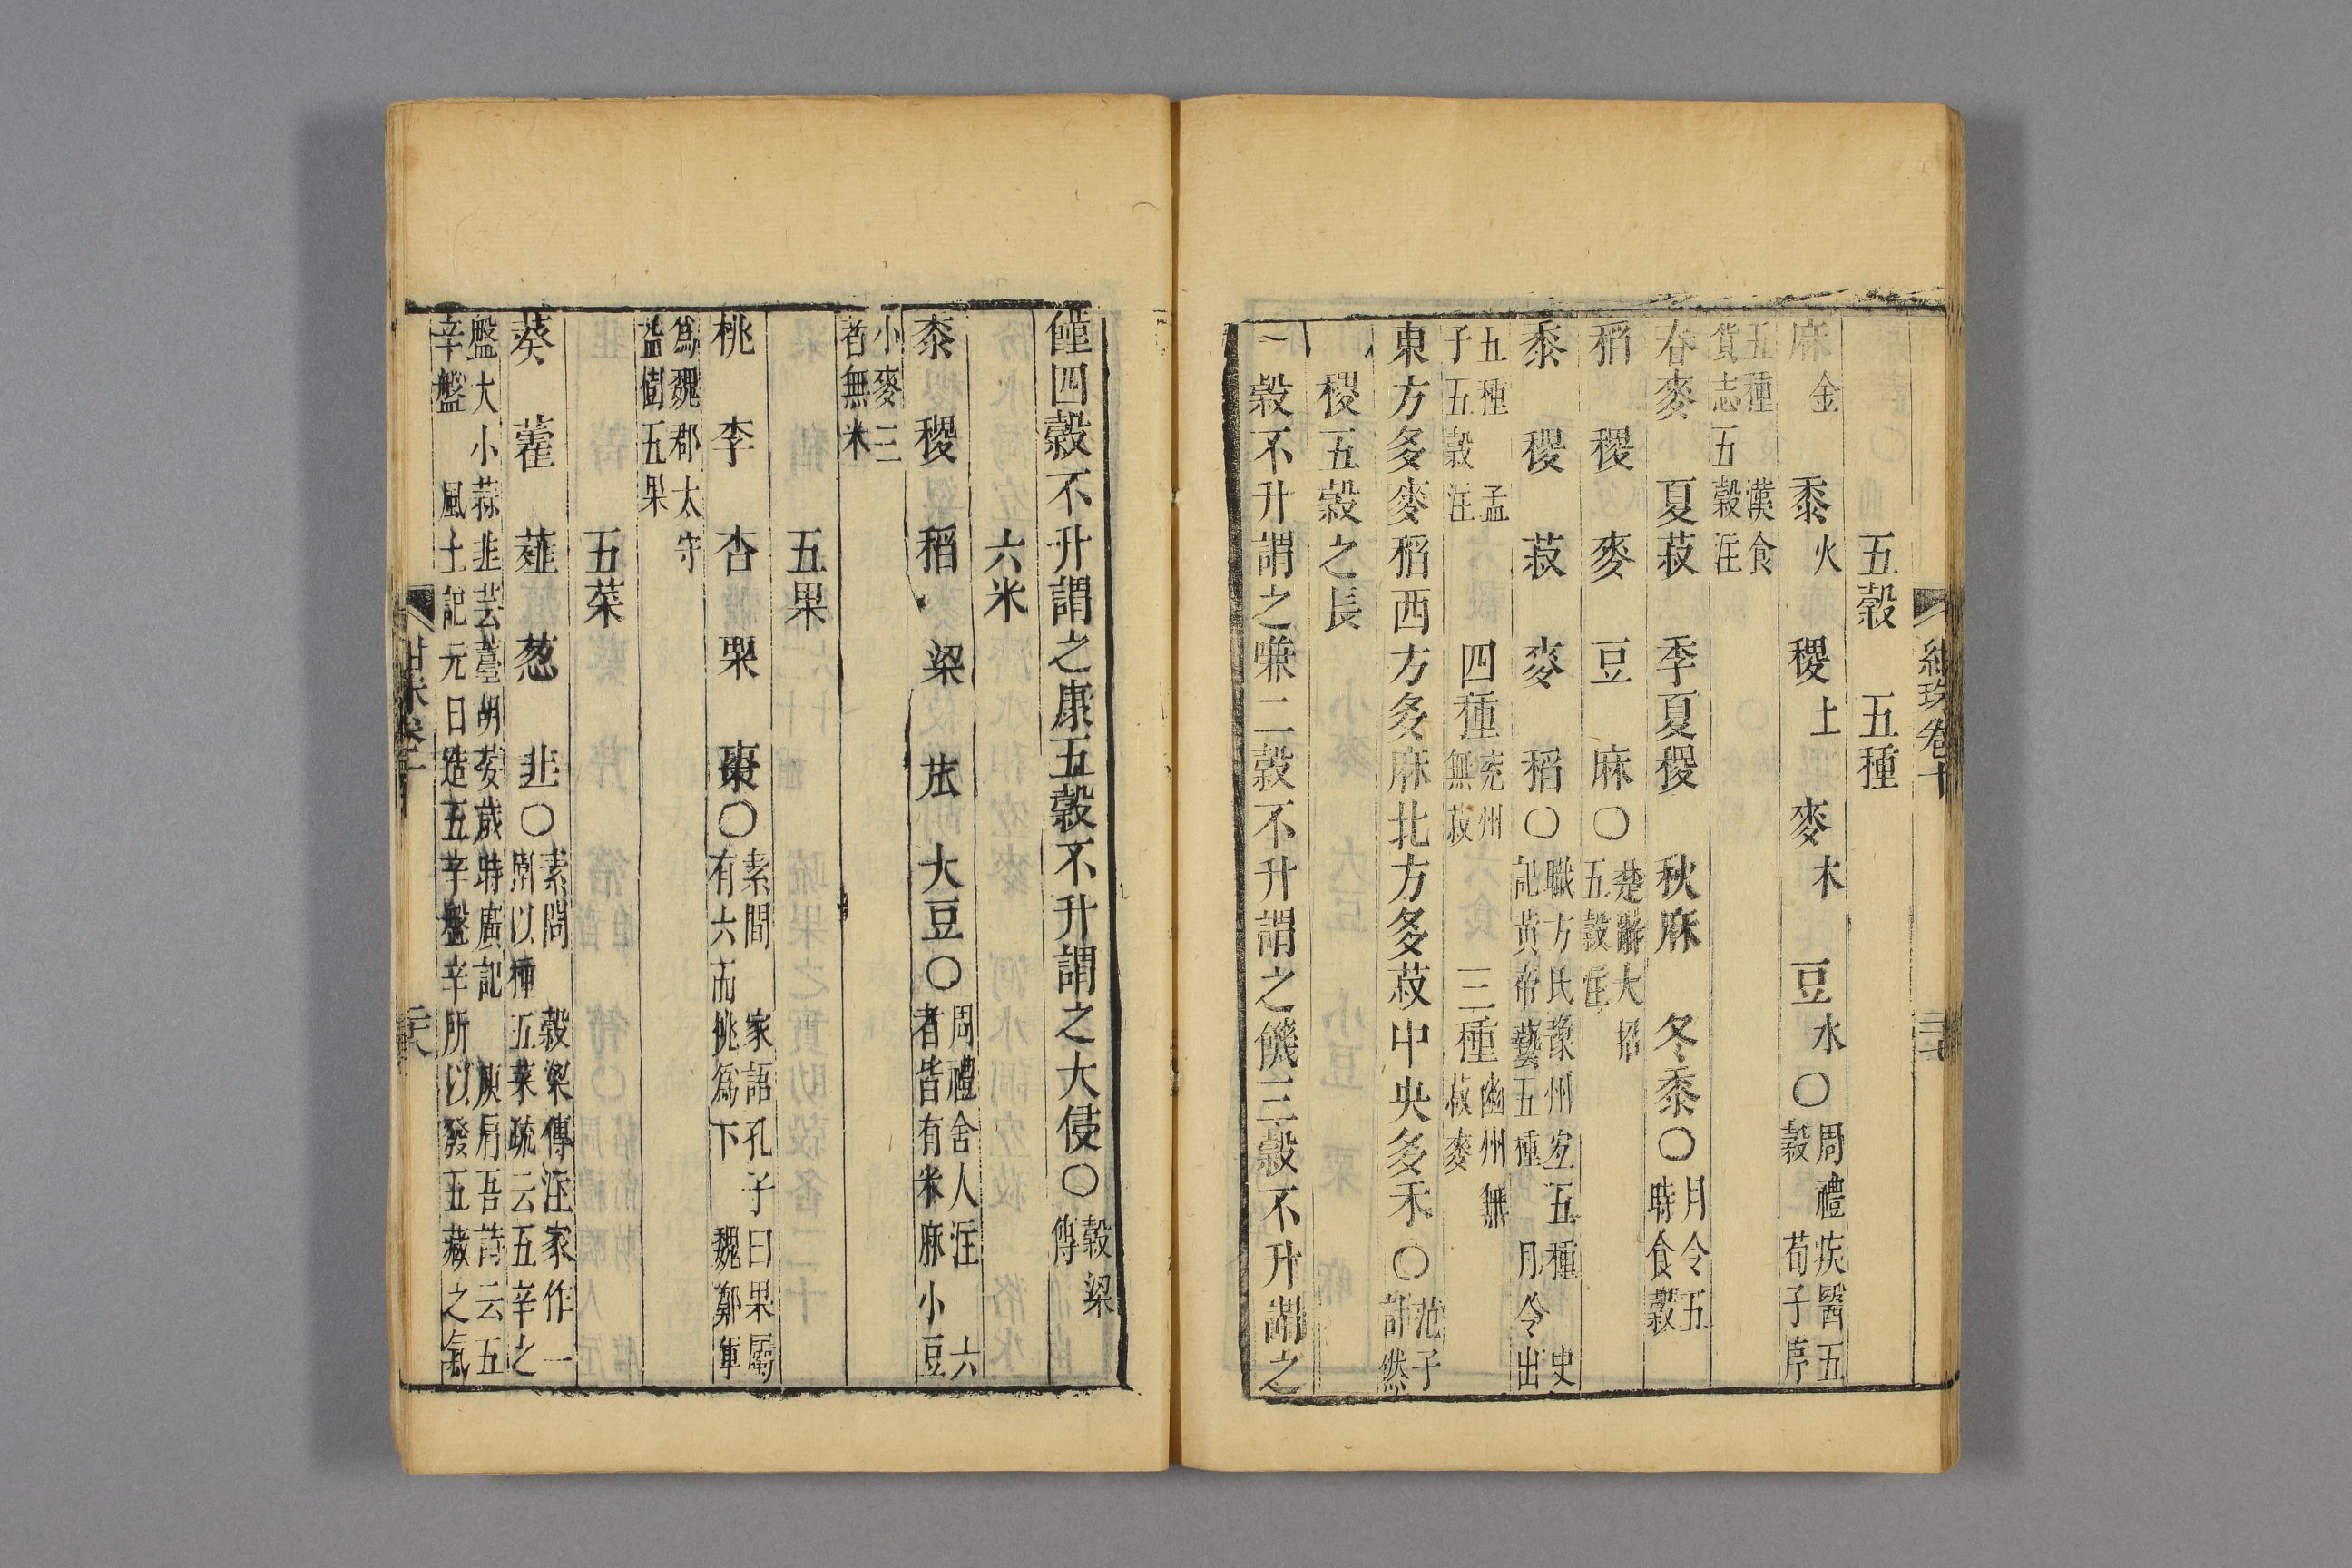 五穀　五種
麻金　黍火　稷土　麥木　豆水〇周禮疾醫五穀荀子序
五種漢食貨志五穀注
春麥　夏菽　季夏稷　秋麻　冬黍〇月令五時食穀
稻　稷　麥　豆　麻〇楚辭大招五穀注
黍　稷　菽　麥　稻〇職方氏豫州宜五種史記黃帝藝五種月令出
五種孟子五穀注　四種兗州無菽　三種幽州無菽麥
東方多麥稻西方多麻北方多菽中央多禾〇范子計然
稷五穀之長
一穀不升謂之嗛二穀不升謂之饑三穀不升謂之
饉四穀不升謂之康五穀不升謂之大侵〇穀梁傳
六米
黍　稷　稻　粱　苽　大豆〇周禮舍人注六者皆有米麻小豆
小麥三者無米
五果
桃　李　杏　栗　棗〇素問家語孔子曰果屬有六而桃爲下魏鄭軍
爲魏郡太守益樹五果
五菜
葵　藿　薤　葱　韭〇素問穀梁傳注家作一園以種五菜疏云五辛之
盤大小蒜韭芸薹胡荽歲時廣記庾肩吾詩云五辛盤　風土記元日造五辛盤辛所以發五藏之氣